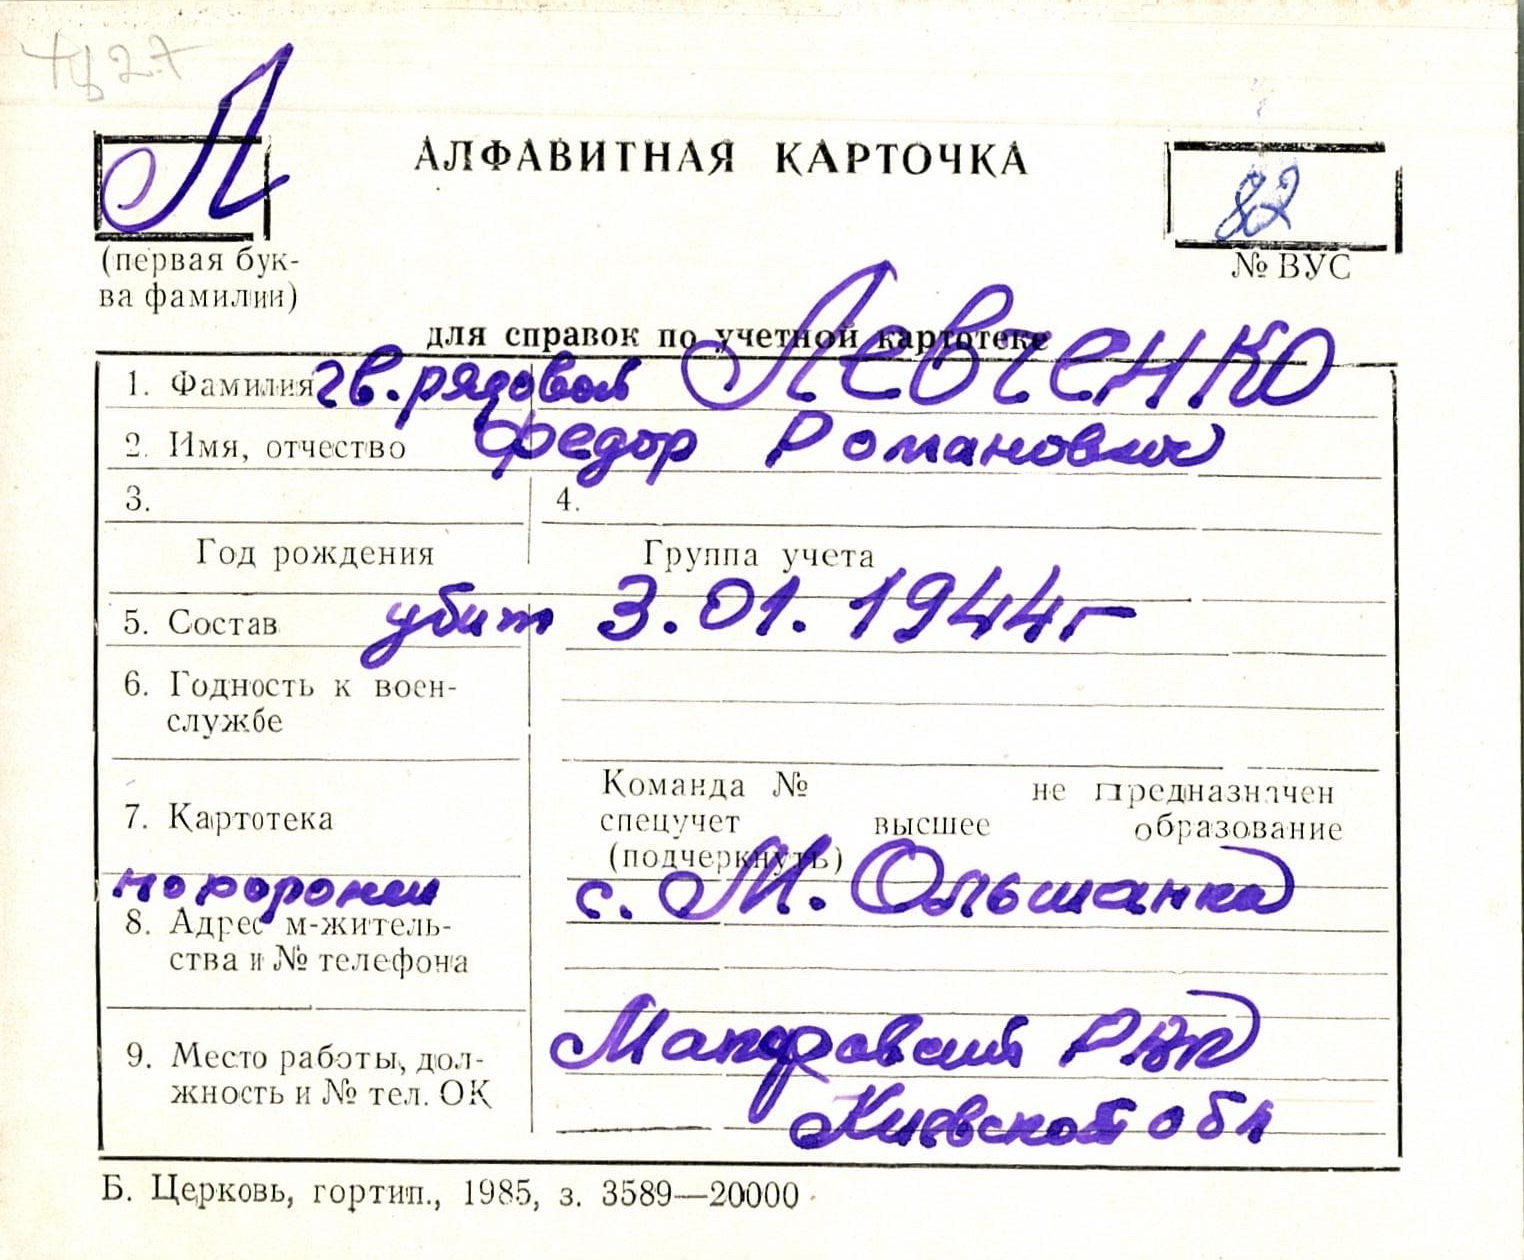 Л
АЛФАВИТНАЯ КАРТОЧКА
82
(первая бук-
ва фамилии)
№ ВУС
для справок по учетной картотеке
1. Фамилия гв. рядовой Левченко
2. Имя, отчество Федор Романович
3.
4.
Год рождения
Группа учета
5. Состав убит 3.01.1944г
6. Годность к воен-
службе
Команда № не предназначен
7. Картотека
спецучет высшее образование
(подчеркнуть)
похоронен с. М. Ольшанка
8. Адрес м-житель-
ства и № телефона
9. Место работы, дол-
жность и № тел. ОК
Киевской обл
Б. Церковь, гортип., 1985, з. 3589—20000